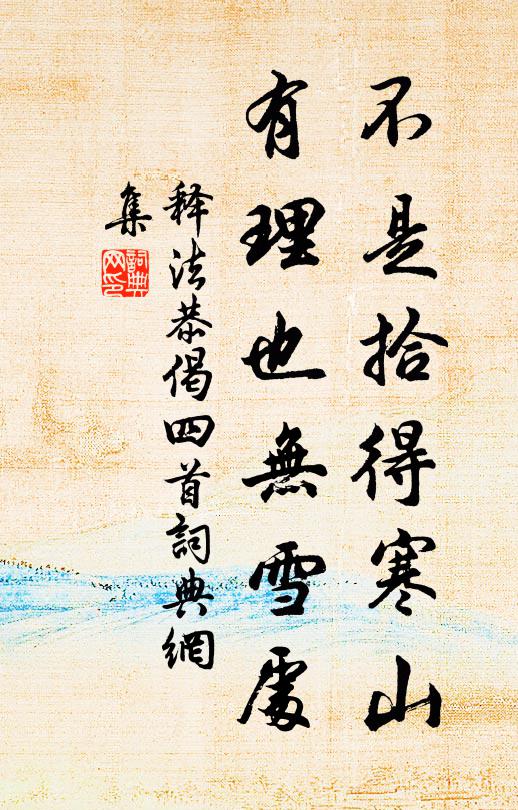 不是拾得寒山
有理也無雪處
释法恭偈四首詞典網
集
詞典
网印